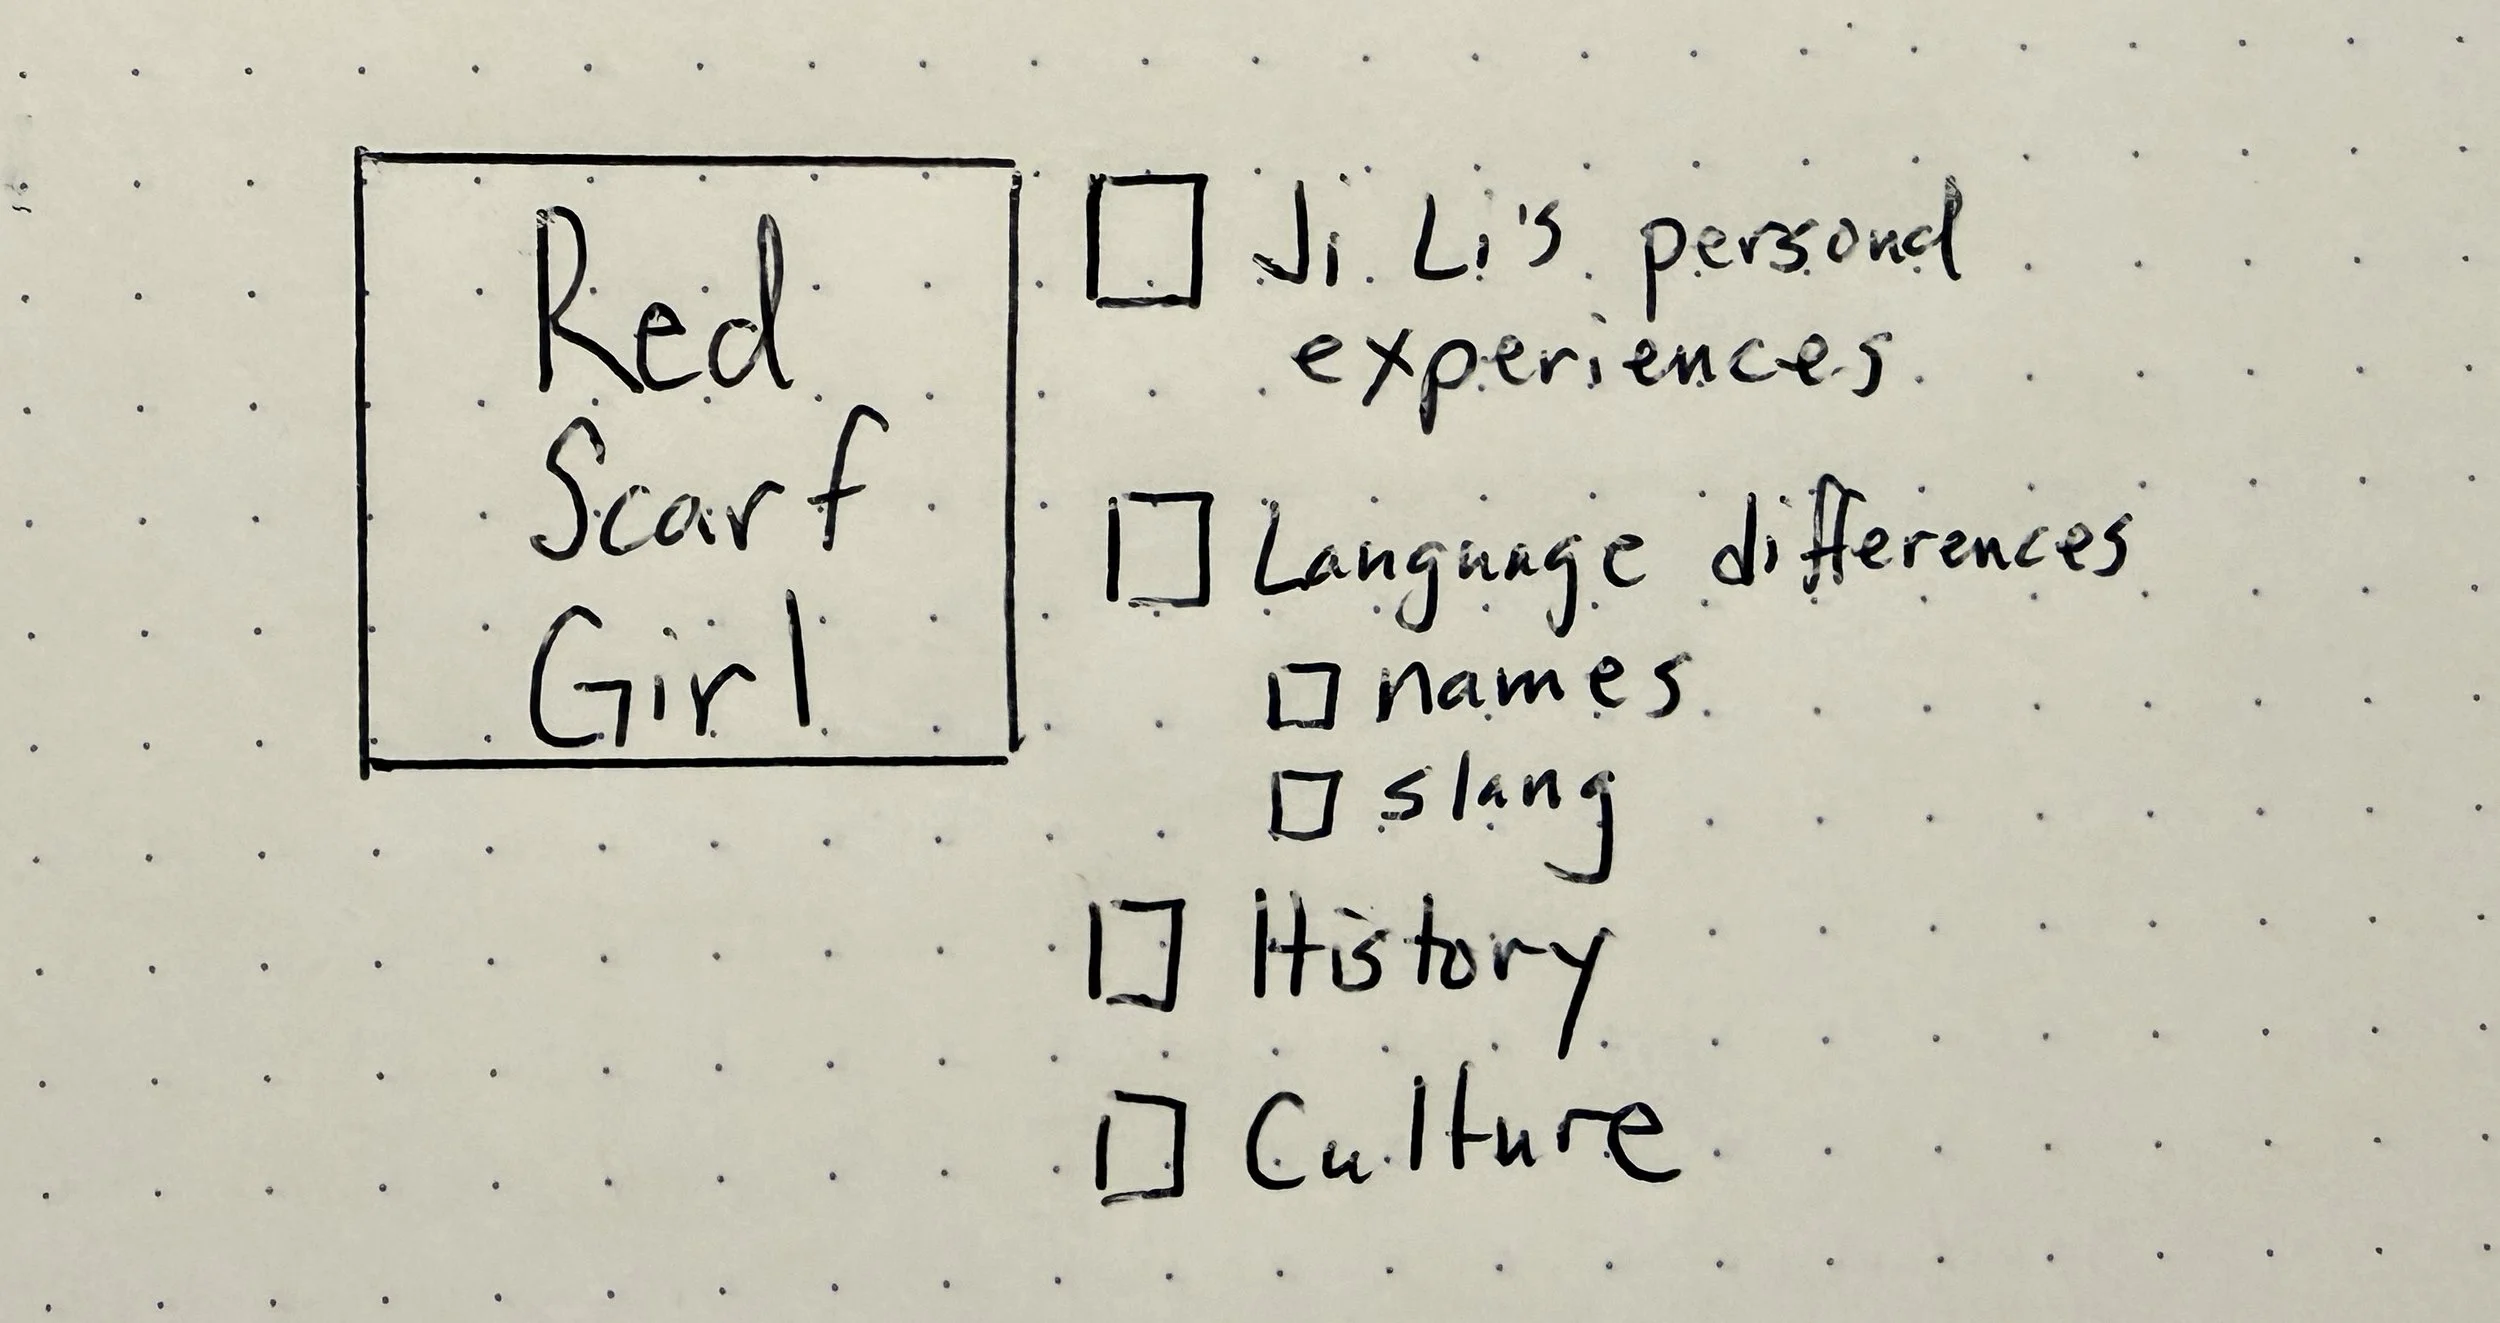 Red
Scarf
Girl
☐ Ji Li's personal
experiences
☐ Language differences
☐ names
☐ slang
☐ History
☐ Culture